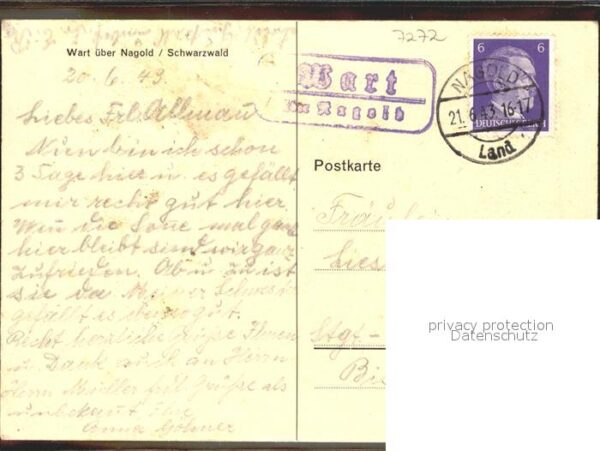 7272
Wart über Nagold / Schwarzwald
20.6.43.
Liebes Frl. Allmau
Nun bin ich schon
3 Tage hier u. es gefällt
mir recht gut hier
Wen die Sone mal ganz
hier bleibt sind wir ganz
zufrieden. Ab u. zu ist
sie da. Meiner Schwester
gefällt es gut
Recht herzliche Grüße Ihnen
u. Dank auch an Herrn
Herrn Müller Grüße als
unbekant
Anna
Wart
Nagold
6 6
DEUTSCHES REICH
NAGOLD
21.6.43.16-17
Land
Postkarte
Fräulein
Lies
Stgt-
privacy protection
Datenschutz